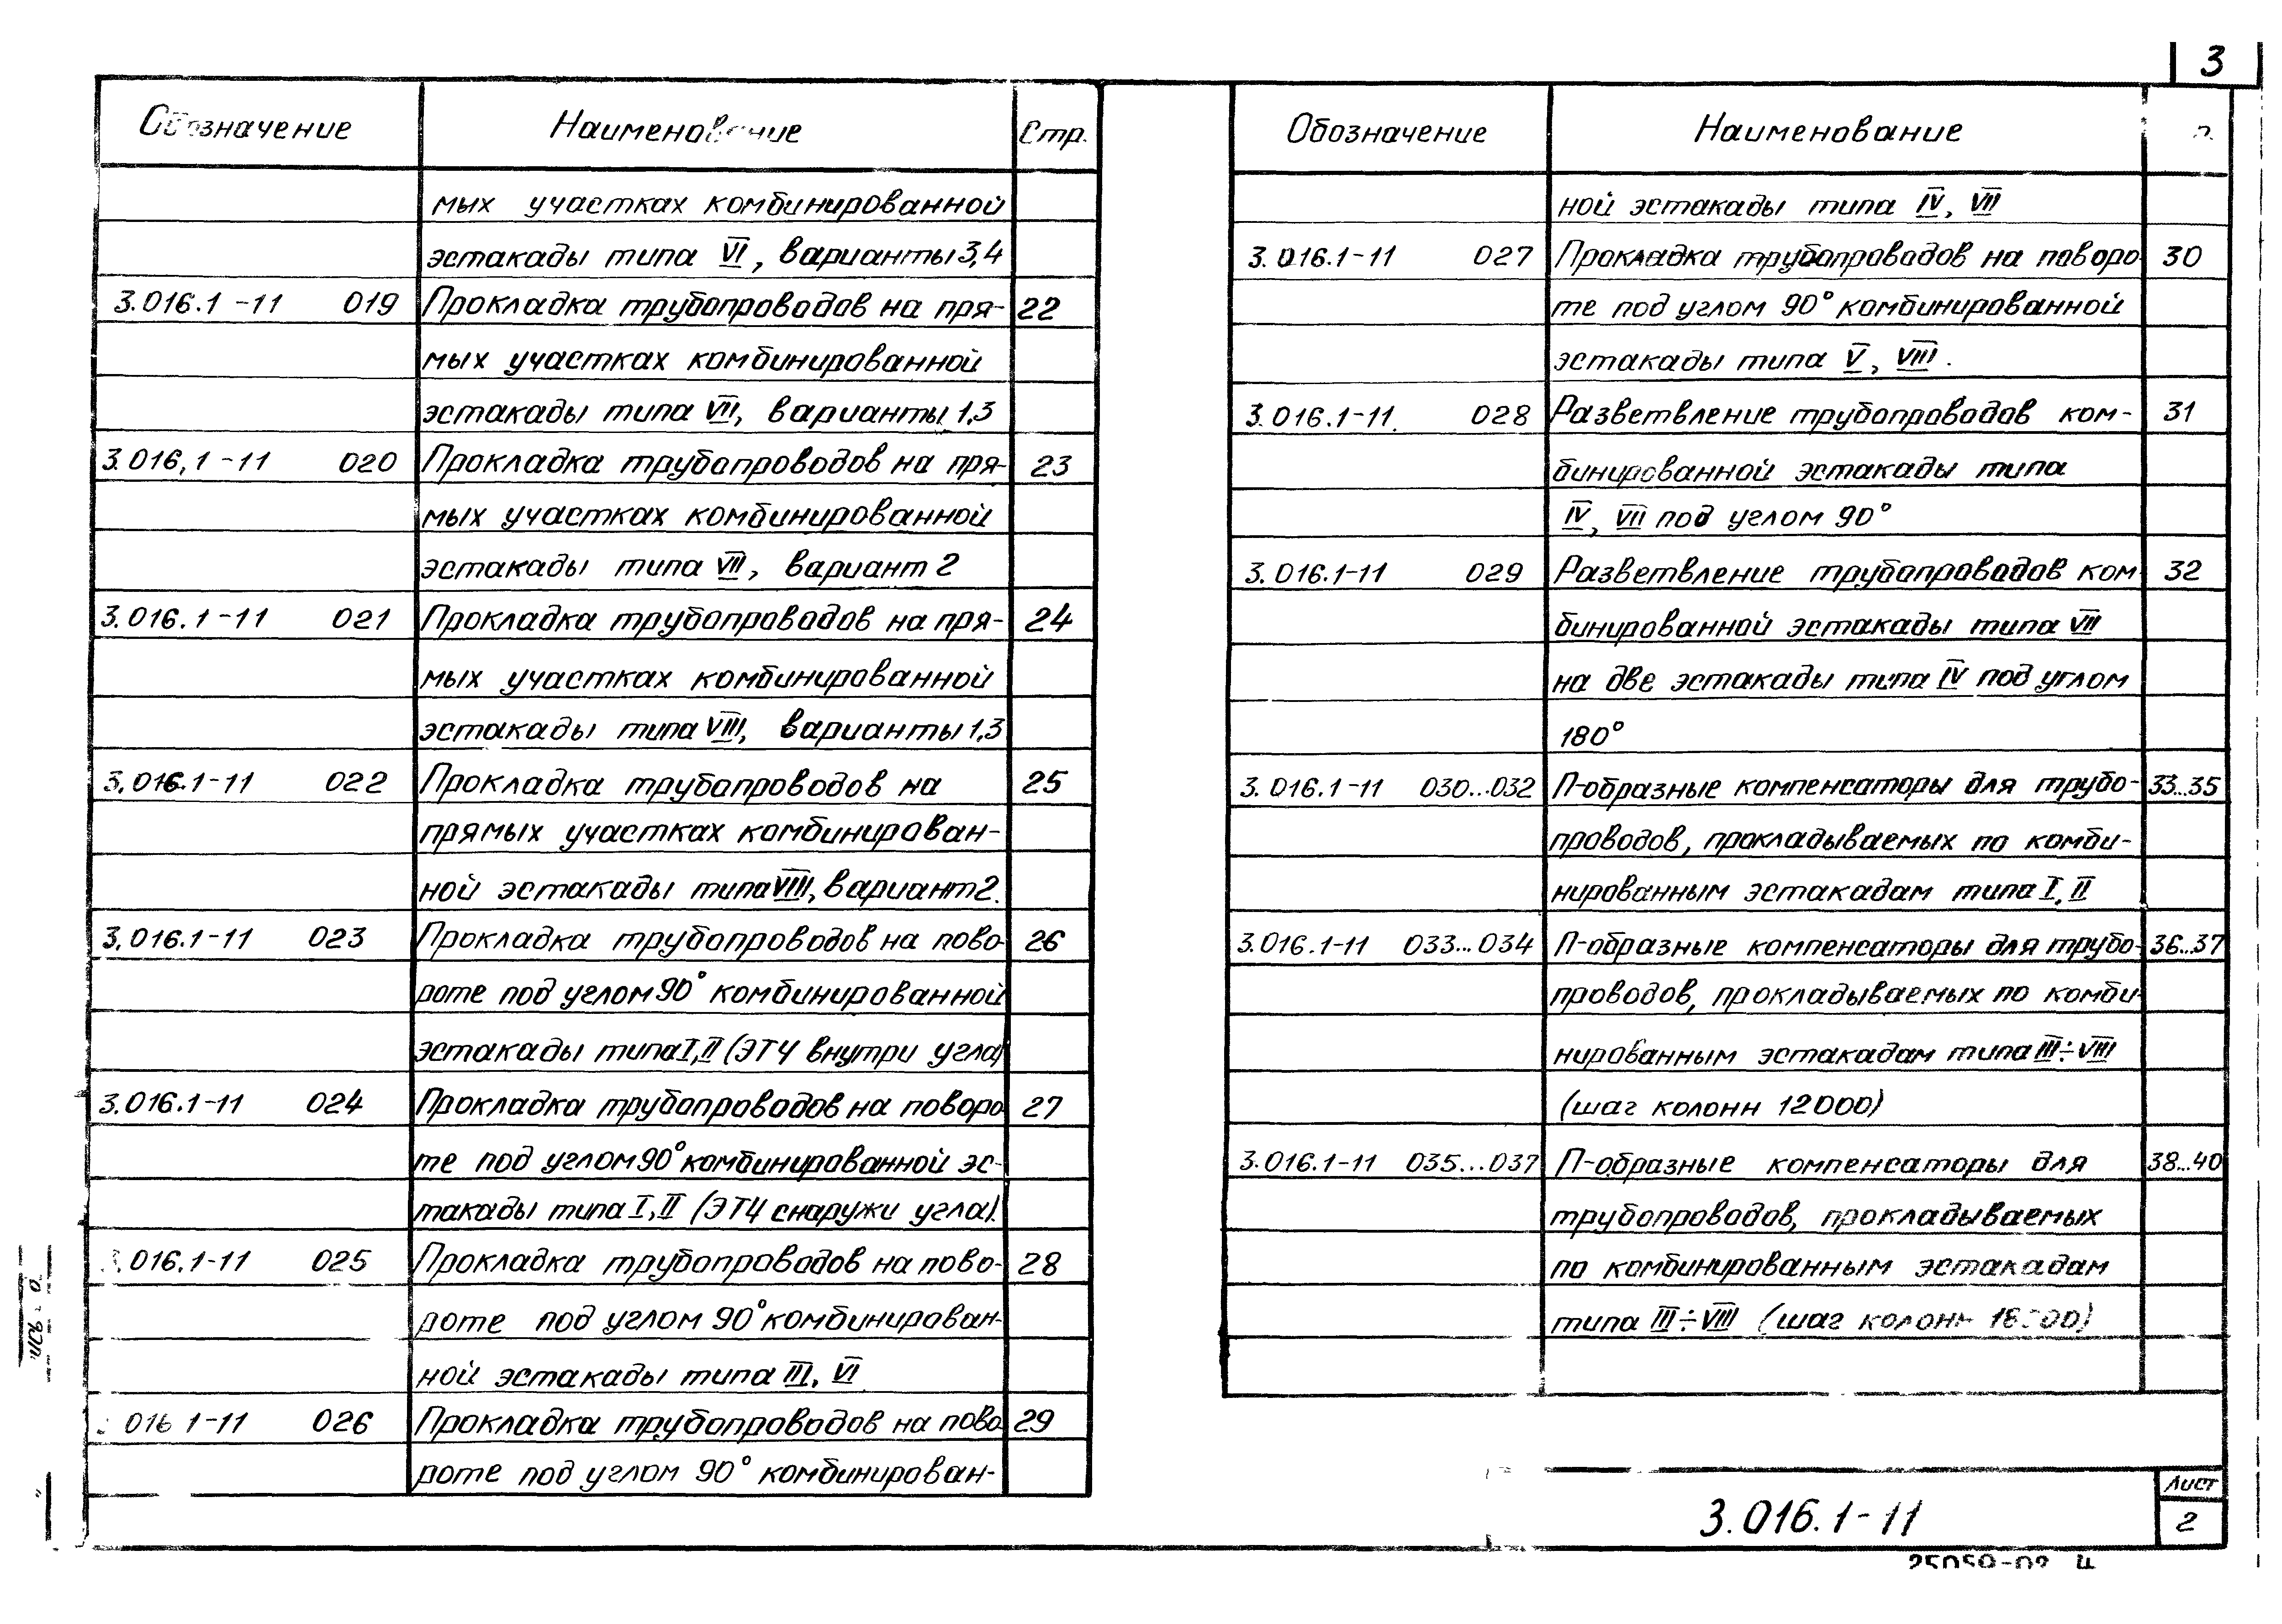 3
Обозначение Наименование Стр.
мых участках комбинированной
эстакады типа VI, варианты 3,4
3.016.1-11 019 Прокладка трубопроводов на пря- 22
мых участках комбинированной
эстакады типа VII, варианты 1,3
3.016.1-11 020 Прокладка трубопроводов на пря- 23
мых участках комбинированной
эстакады типа VII, вариант 2
3.016.1-11 021 Прокладка трубопроводов на пря- 24
мых участках комбинированной
эстакады типа VIII, варианты 1,3
3.016.1-11 022 Прокладка трубопроводов на 25
прямых участках комбинирован-
ной эстакады типа VIII, вариант 2.
3.016.1-11 023 Прокладка трубопроводов на пово- 26
роте под углом 90° комбинированной
эстакады типа I, II (ЭТЧ внутри угла)
3.016.1-11 024 Прокладка трубопроводов на поворо 27
те под углом 90° комбинированной эс-
такады типа I, II (ЭТЧ снаружи угла).
3.016.1-11 025 Прокладка трубопроводов на пово- 28
роте под углом 90° комбинирован-
ной эстакады типа III, VI
016 1-11 026 Прокладка трубопроводов на пово 29
роте под углом 90° комбинирован-
Обозначение Наименование
ной эстакады типа IV, VII
3.016.1-11 027 Прокладка трубопроводов на поворо 30
те под углом 90° комбинированной
эстакады типа V, VIII.
3.016.1-11. 028 Разветвление трубопроводов ком- 31
бинированной эстакады типа
IV, VII под углом 90°
3.016.1-11 029 Разветвление трубопроводов ком 32
бинированной эстакады типа VII
на две эстакады типа IV под углом
180°
3.016.1-11 030...032 П-образные компенсаторы для трубо- 33...35
проводов, прокладываемых по комби-
нированным эстакадам типа I, II
3.016.1-11 033...034 П-образные компенсаторы для трубо- 36...37
проводов, прокладываемых по комби-
нированным эстакадам типа III÷VIII
(шаг колонн 12000)
3.016.1-11 035...037 П-образные компенсаторы для 38...40
трубопроводов, прокладываемых
по комбинированным эстакадам
типа III÷VIII (шаг колонн 18000)
3.016.1-11
Лист
2